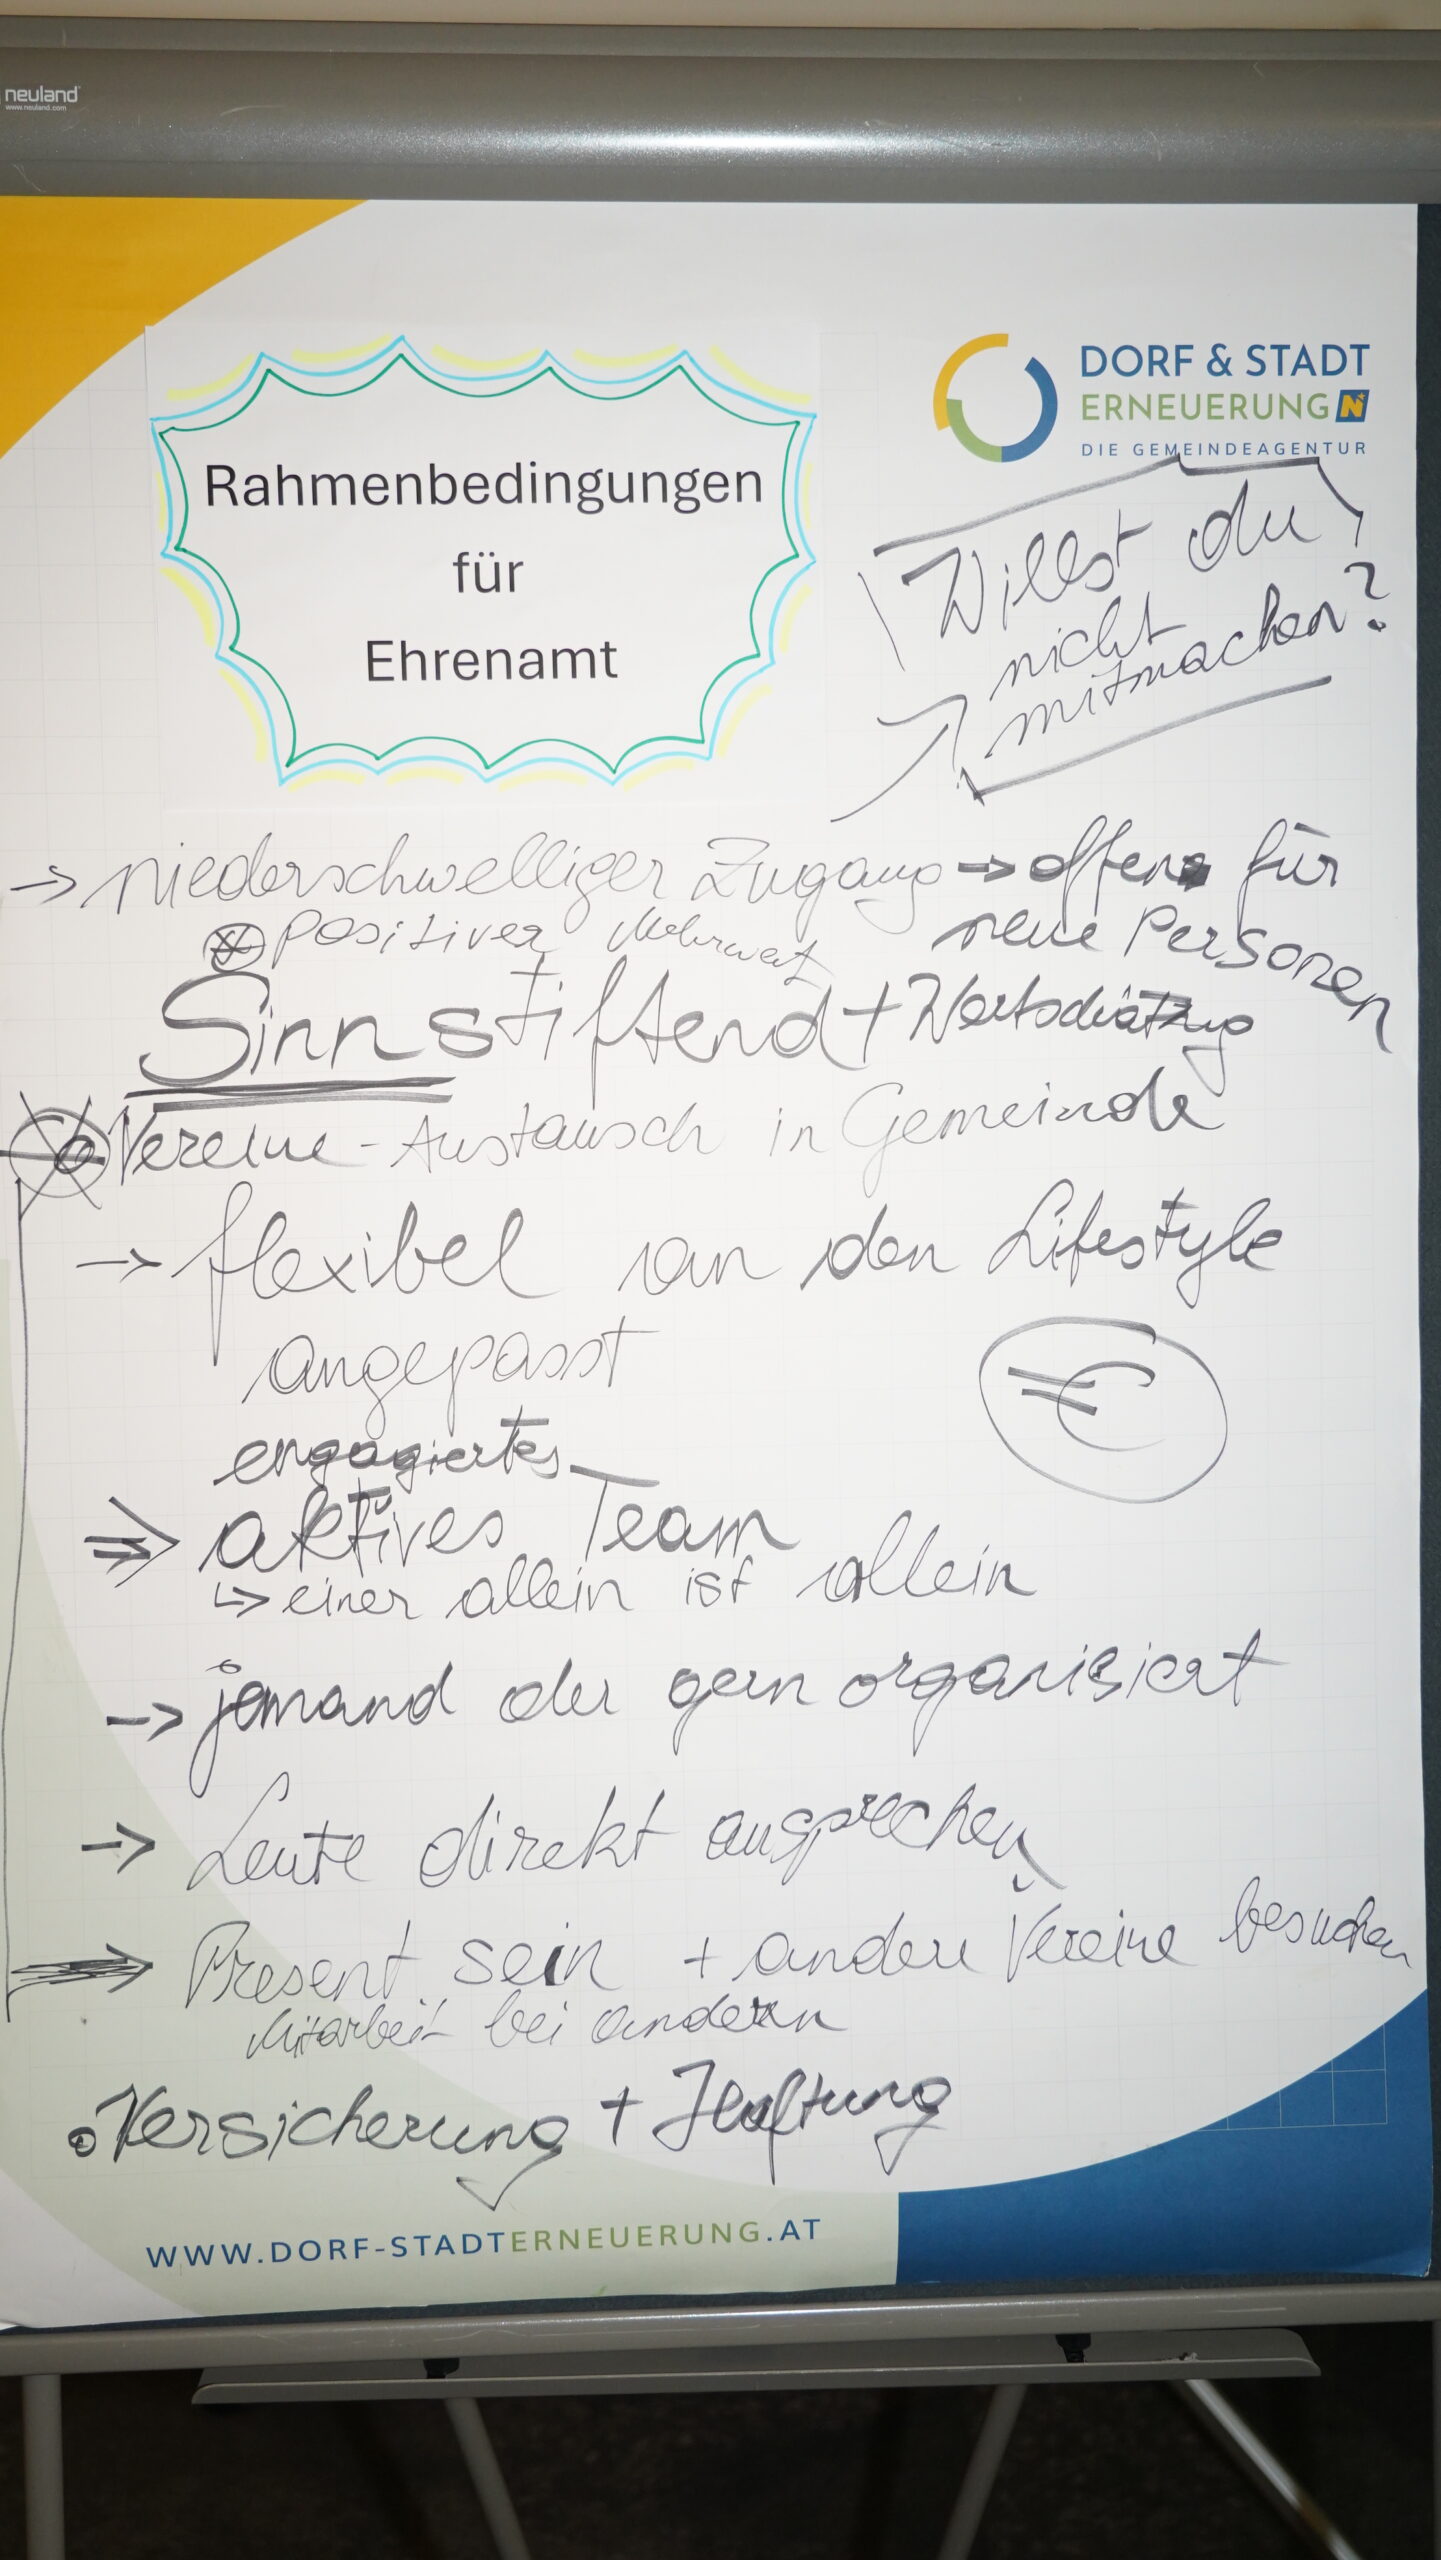 neuland
www.neuland.com
DORF & STADT
ERNEUERUNG N
DIE GEMEINDEAGENTUR
Rahmenbedingungen
für
Ehrenamt
Willst du
nicht
mitmachen?
→ niederschwelliger Zugang → offen für
neue Personen
positiver Mehrwert
Sinnstiftend + Wertschätzung
Vereine - Austausch in Gemeinde
→ flexibel an den Lifestyle
angepasst
€
engagiertes
⇒ aktives Team
↳ einer allein ist allein
→ jemand der gern organisiert
→ Leute direkt ansprechen
→ Present sein + andere Vereine besuchen
Mitarbeit bei andern
• Versicherung + Haftung
WWW.DORF-STADTERNEUERUNG.AT